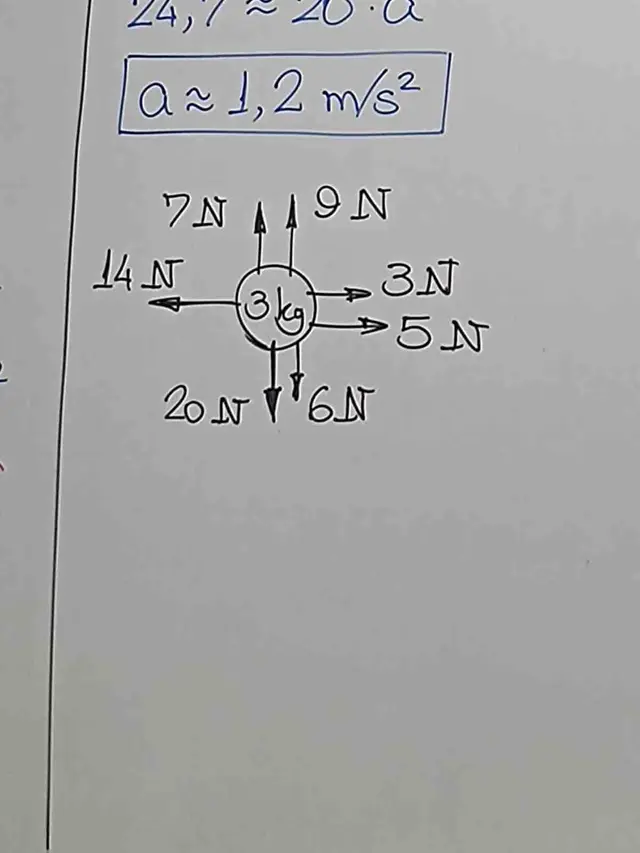 24,7 ≈ 20 · a
a ≈ 1,2 m/s²
7N 9N
14N 3kg 3N
5N
20N 6N